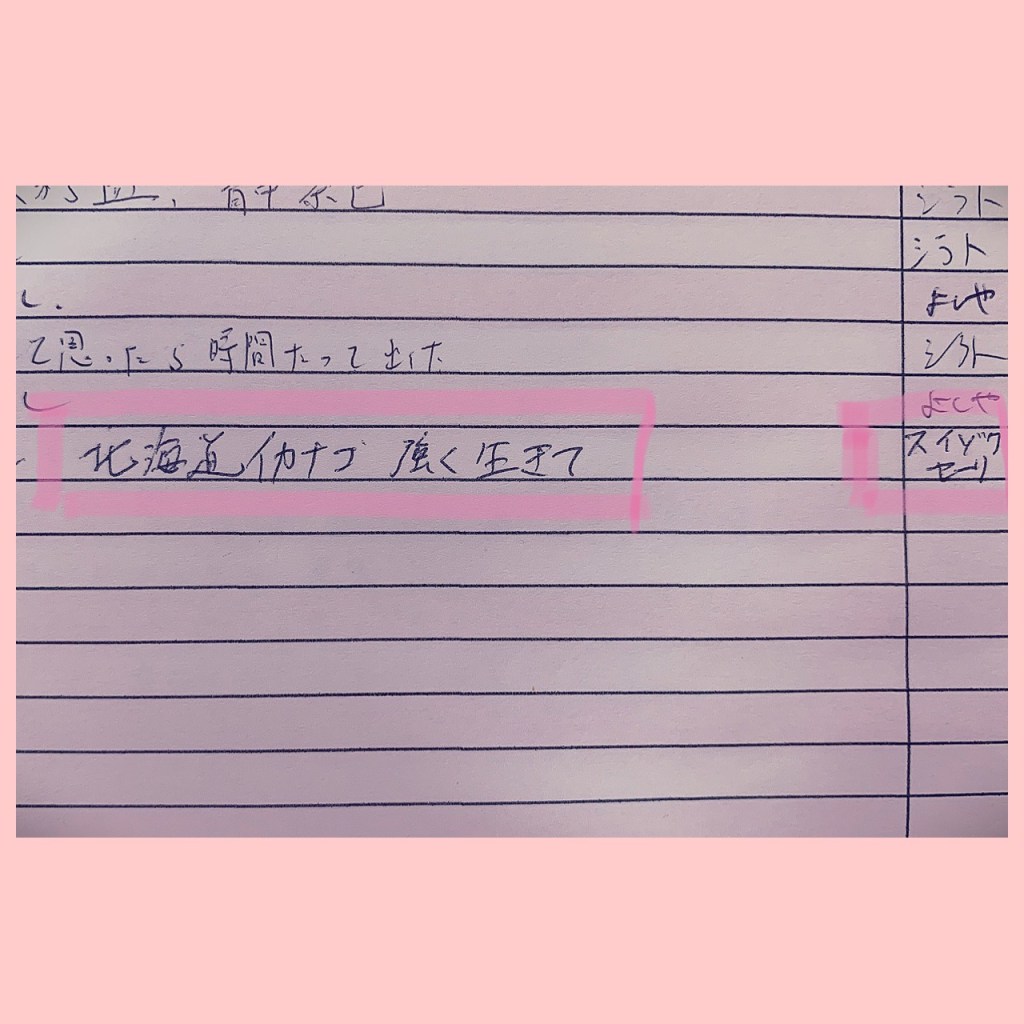 から血、背中茶色
シラト
シラト
し.
よしや
て思ったら時間たって出けた
シラト
し
よしや
北海道イカナゴ 強く生きて
スイゾク
セーリ